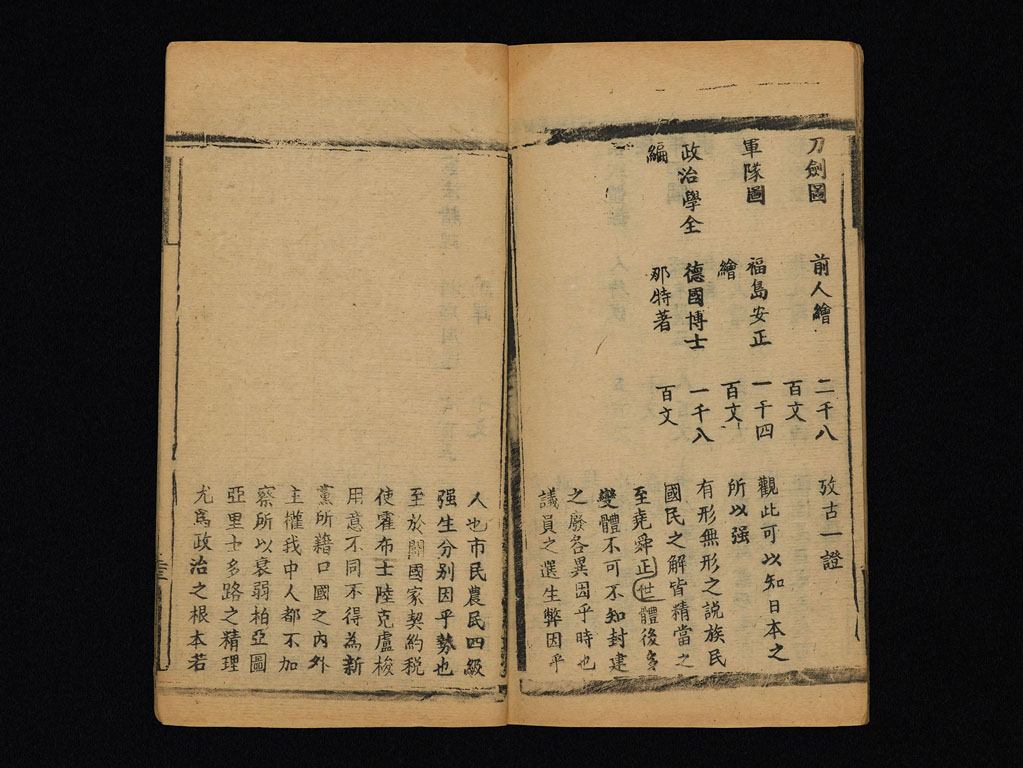 刀劍圖
前人繪
二千八
百文
攷古一證
軍隊圖
福島安正
繪
一千四
百文
觀此可以知日本之
所以强
政治學全
編
德國博士
那特著
一千八
百文
有形無形之說族民
國民之解皆精當之
至堯舜正世體後多
變體不可不知封建
之廢各異因乎時也
議員之選生弊因乎
人也市民農民四級
强生分别因乎勢也
至於闢國家契約税
使霍布士陸克盧梭
用意不同不得為新
黨所藉口國之内外
主權我中人都不加
察所以衰弱柏亞圖
亞里士多路之精理
尤爲政治之根本若